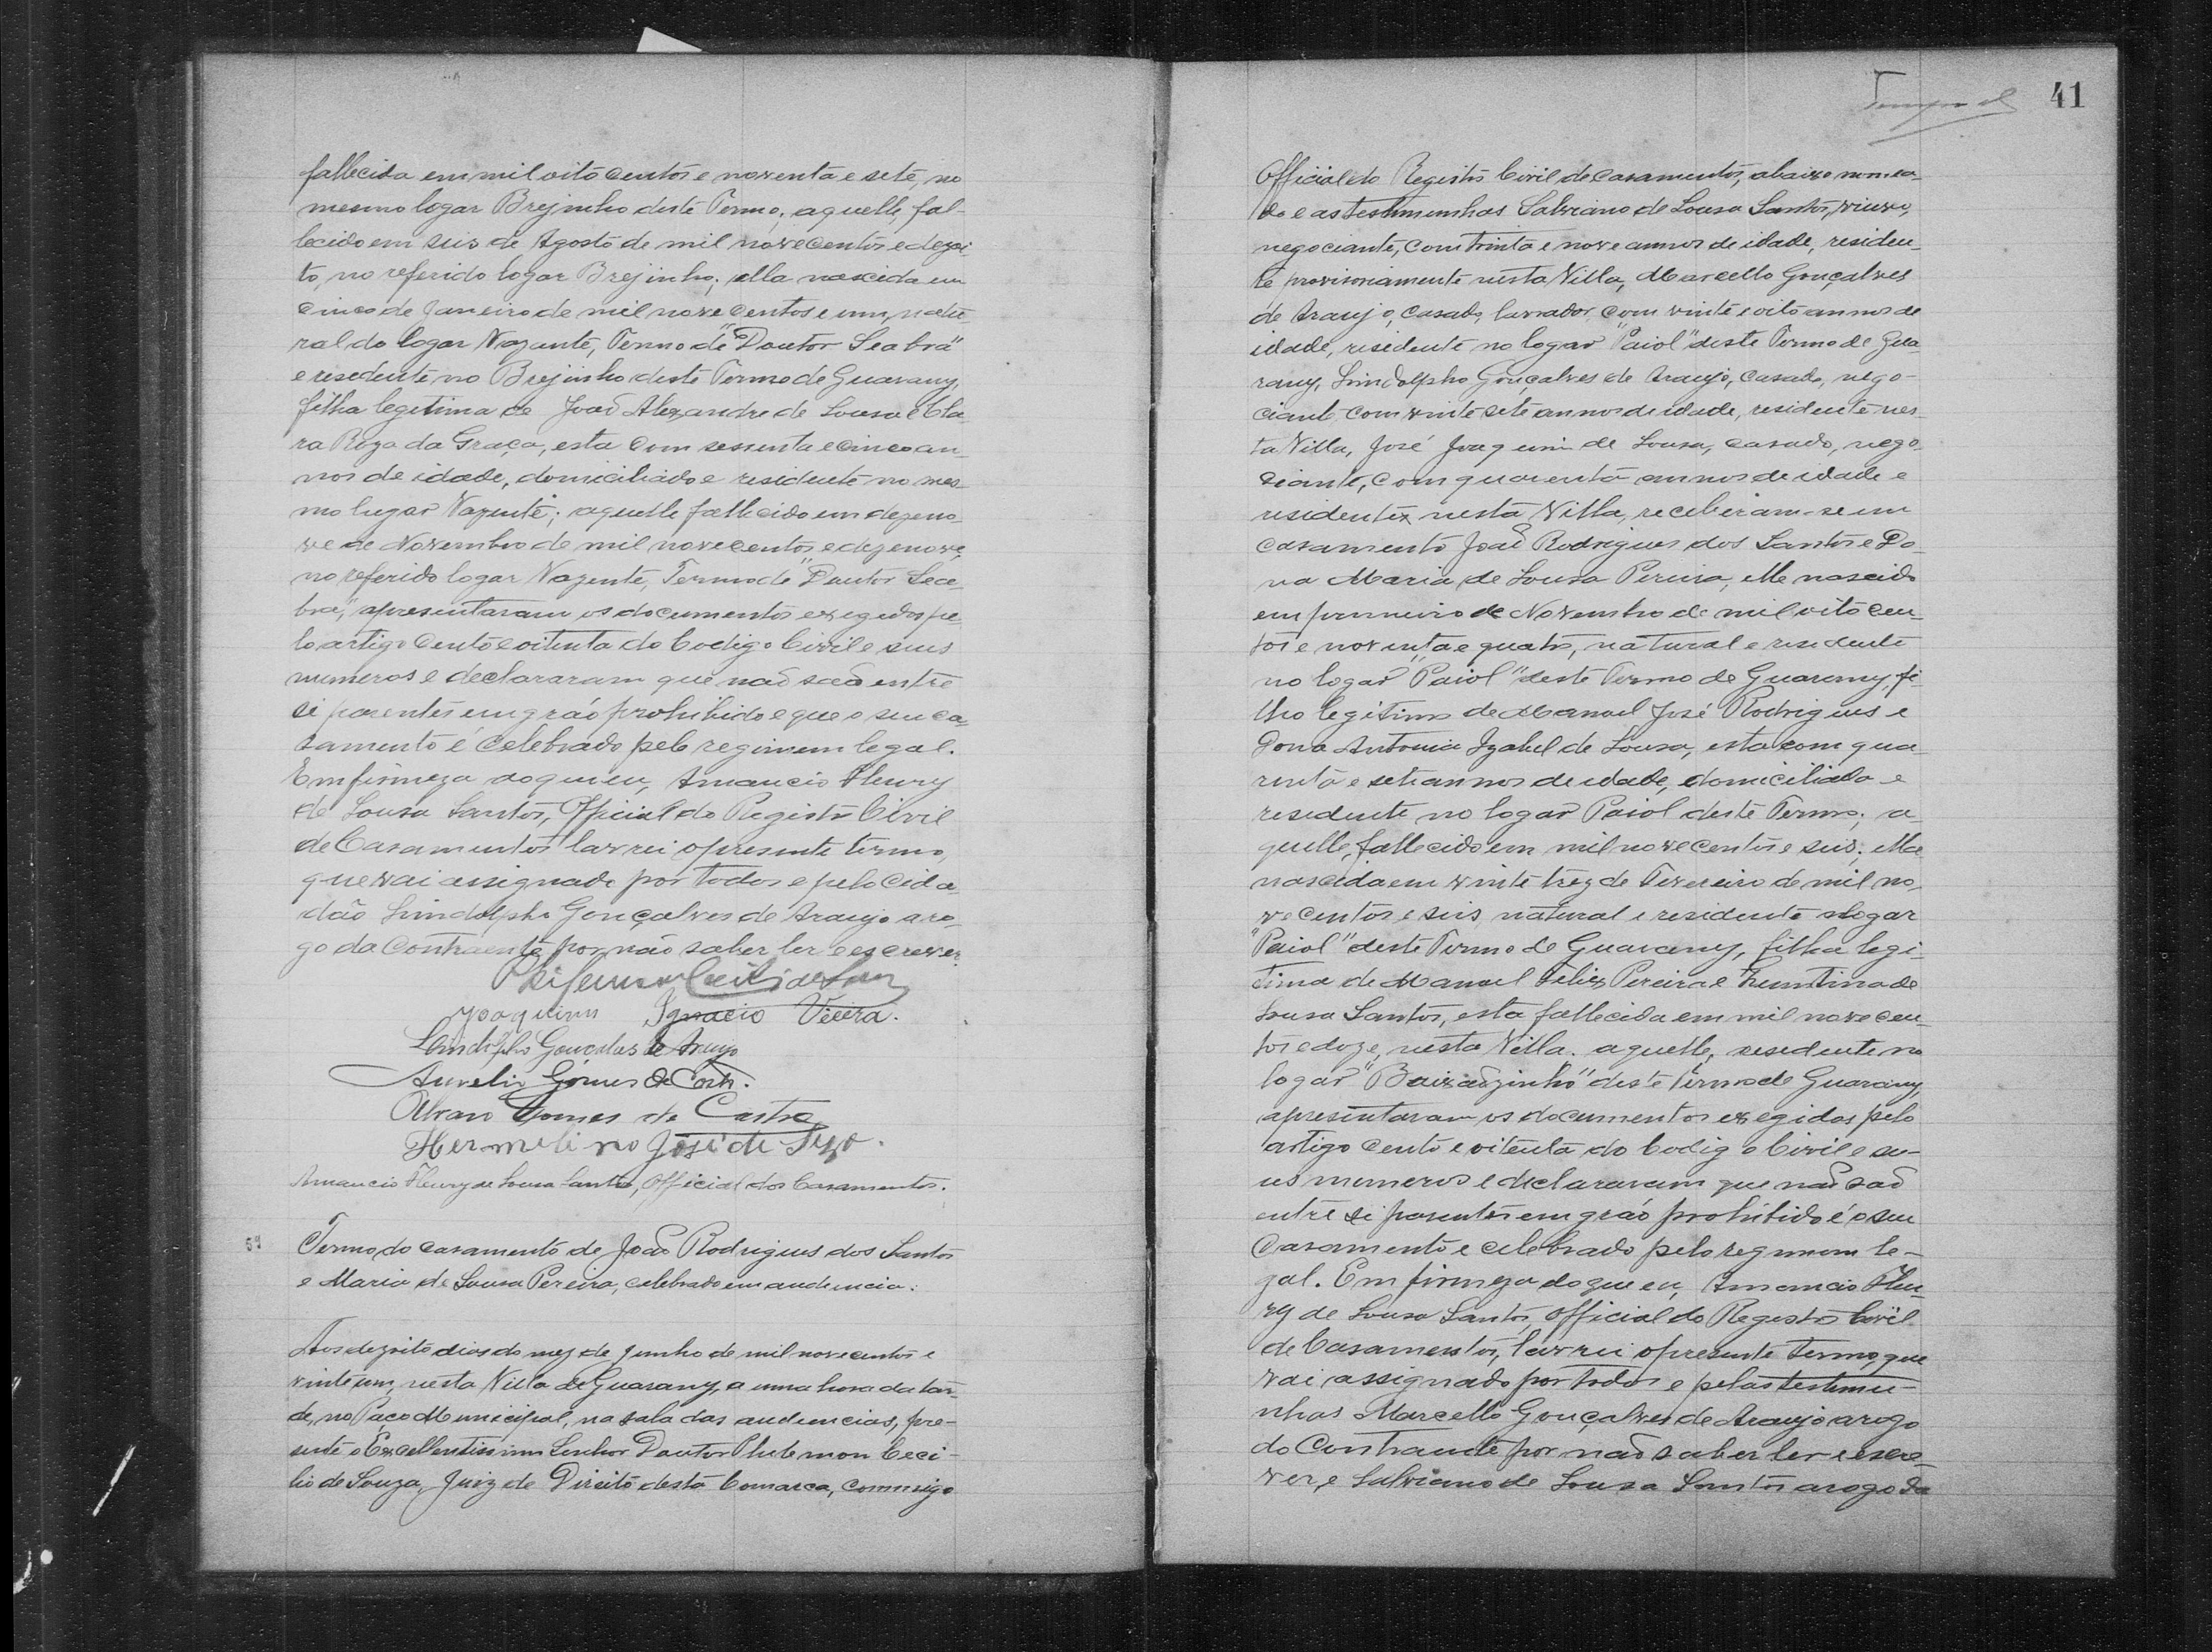 fallecida em mil oito centos e noventa e sete, no
mesmo logar Brejinho deste Termo; aquelle fal-
lecido em seis de Agosto de mil novecentos e dezoi-
to, no referido logar Brejinho; ella nascida em
cinco de Janeiro de mil novecentos e um, natu-
ral do logar Nazente, Termo de "Doutor Seabra"
e residente no Brejinho deste Termo de Guarany,
filha legitima de João Alexandre de Sousa e Cla-
ra Roza da Graça, esta com sessenta e cinco an-
nos de idade, domiciliado e residente no mes-
mo lugar Nazente; aquelle fallecido em dezeno-
ve de Novembro de mil novecentos e dezenove,
no referido logar Nazente, Termo de "Doutor Sea-
bra", apresentaram os documentos exegidos pe-
lo artigo cento e oitenta do Codigo Civil e seus
numeros e declararam que não são entre
si parentes em gráo prohibido e que o seu ca-
samento é celebrado pelo regimem legal.
Em firmeza do que eu, Amancio Fleury
de Sousa Santos, Official do Registo Civil
de Casamentos lavrei o presente termo,
que vai assignado por todos e pelo Cida-
dão Lindolpho Gonçalves de Araujo a ro-
go da Contraente por não saber ler e escrever.
Joaquim Ignacio Vieira.
Lindolpho Gonçalves de Araujo
Aurelio Gomes de Castr.
Alvaro Gomes de Castro
Hermelino José de
Amancio Fleury de Sousa Santos, Official dos Casamentos.
59 Termo do casamento de João Rodrigues dos Santos
e Maria de Sousa Pereira, celebrado em audiencia.
Aos dezoito dias do mez de Junho de mil novecentos e
vinte um, nesta Villa de Guarany, a uma hora da tar-
de, no Paço Municipal, na sala das audiencias, pre-
sente o Excellentissimo Senhor Doutor Philemon Ceci-
lio de Souza, Juiz de Direito desta Comarca, commigo
41
Official do Registo Civil de casamentos, abaixo nomea-
do e as testemunhas Salviano de Sousa Santos, viuvo,
negociante, com trinta e nove annos de idade, residen-
te provisoriamente nesta Villa, Marcello Gonçalves
de Araujo, casado, lavrador, com vinte e oito annos de
idade, residente no logar "Paiol" deste Termo de Gua-
rany, Lindolpho Gonçalves de Araujo, casado, nego-
ciante com vinte sete annos de idade, residente nes-
ta Villa, José Joaquim de Sousa, casado, nego-
ciante, com quarenta annos de idade e
residentes nesta Villa, receberam-se em
casamento João Rodrigues dos Santos e Do-
na Maria de Sousa Pereira, elle nascido
em primeiro de Novembro de mil oito cen-
tos e noventa e quatro, natural e residente
no logar "Paiol" deste Termo de Guarany, fi-
lho legitimo de Manoel José Rodrigues e
Dona Antonia Izabel de Sousa, esta com qua-
renta e sete annos de idade, domiciliada e
residente no logar Paiol deste Termo; a-
quelle, fallecido em mil novecentos e seis; ella
nascida em vinte trez de Fevereiro de mil no-
vecentos e seis natural e residente no logar
"Paiol" deste Termo de Guarany, filha legi-
tima de Manoel Felix Pereira e de
Sousa Santos, esta fallecida em mil novecen-
tos e doze, nesta Villa. aquelle, residente no
logar "Baixãozinho" deste Termo de Guarany,
apresentaram os documentos exegidos pelo
artigo cento e oitenta do Codigo Civil e se-
us numeros e declararam que não são
entre si parentes em gráo prohibido é o seu
Casamento e celebrado pelo regimem le-
gal. Em firmeza do que eu, Amancio Fleu-
ry de Sousa Santos, Official do Registo Civil
de Casamentos, lavrei o presente termo, que
vai assignado por todos e pelas testemu-
nhas Marcello Gonçalves de Araujo a rogo
do Contraente por não saber ler e escre-
ver, e Salviano de Sousa Santos a rogo da